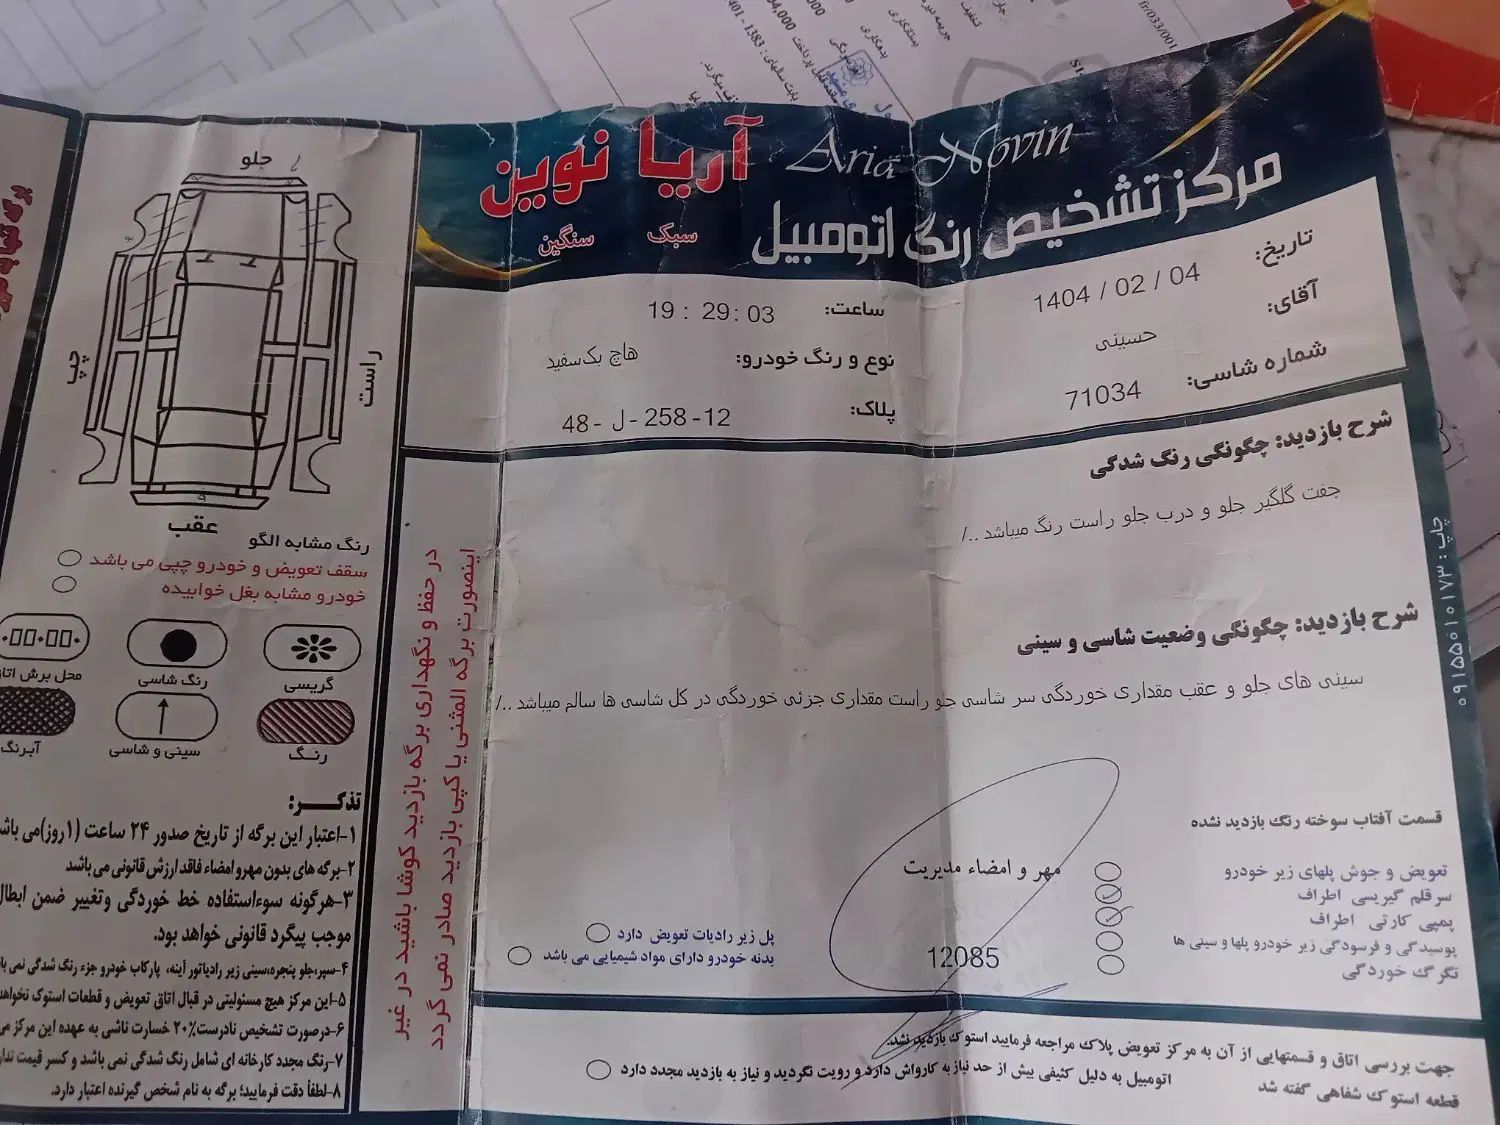 آریا نوین
Aria Novin
سبک
سنگین
مرکز تشخیص رنگ اتومبیل
تاریخ: 1404 / 02 / 04
ساعت: 19 : 29 : 03
آقای: حسینی
نوع و رنگ خودرو: هاچ بک سفید
شماره شاسی: 71034
پلاک: 12-258-ل-48
شرح بازدید: چگونگی رنگ شدگی
جفت گلگیر جلو و درب جلو راست رنگ میباشد ../
شرح بازدید: چگونگی وضعیت شاسی و سینی
سینی های جلو و عقب مقداری خوردگی سر شاسی جلو راست مقداری جزئی خوردگی در کل شاسی ها سالم میباشد ../
قسمت آفتاب سوخته رنگ بازدید نشده
تعویض و جوش پلهای زیر خودرو
سرقلم گیریسی اطراف
پمپی کارتی اطراف
پوسیدگی و فرسودگی زیر خودرو پلها و سینی ها
تگرگ خوردگی
مهر و امضاء مدیریت
12085
پل زیر رادیات تعویض دارد
بدنه خودرو دارای مواد شیمیایی می باشد
جهت بررسی اتاق و قسمتهایی از آن به مرکز تعویض پلاک مراجعه فرمایید استوک بازدید نشد.
قطعه استوک شفاهی گفته شد
اتومبیل به دلیل کثیفی بیش از حد نیاز به کارواش دارد و رویت نگردید و نیاز به بازدید مجدد دارد
چاپ: ۰۹۱۵۵۰۱۰۱۷۳
در حفظ و نگهداری برگه بازدید کوشا باشید در غیر
اینصورت برگه المثنی یا کپی بازدید صادر نمی گردد
جلو
چپ
راست
عقب
رنگ مشابه الگو
سقف تعویض و خودرو چپی می باشد
خودرو مشابه بغل خوابیده
گریسی
رنگ شاسی
محل برش اتاق
رنگ
سینی و شاسی
آبرنگ
تذکر:
۱-اعتبار این برگه از تاریخ صدور ۲۴ ساعت (۱روز)می باشد
۲-برگه های بدون مهر و امضاء فاقد ارزش قانونی می باشد
۳-هرگونه سوءاستفاده خط خوردگی وتغییر ضمن ابطال
موجب پیگرد قانونی خواهد بود.
۴-سپر،جلو پنجره،سینی زیر رادیاتور آینه، پارکاب خودرو جزء رنگ شدگی نمی
۵-این مرکز هیچ مسئولیتی در قبال اتاق تعویض و قطعات استوک نخواهد
۶-درصورت تشخیص نادرست ۲۰٪ خسارت ناشی به عهده این مرکز می
۷-رنگ مجدد کارخانه ای شامل رنگ شدگی نمی باشد و کسر قیمت
۸-لطفاً دقت فرمایید؛ برگه به نام شخص گیرنده اعتبار دارد.
fr/033/001